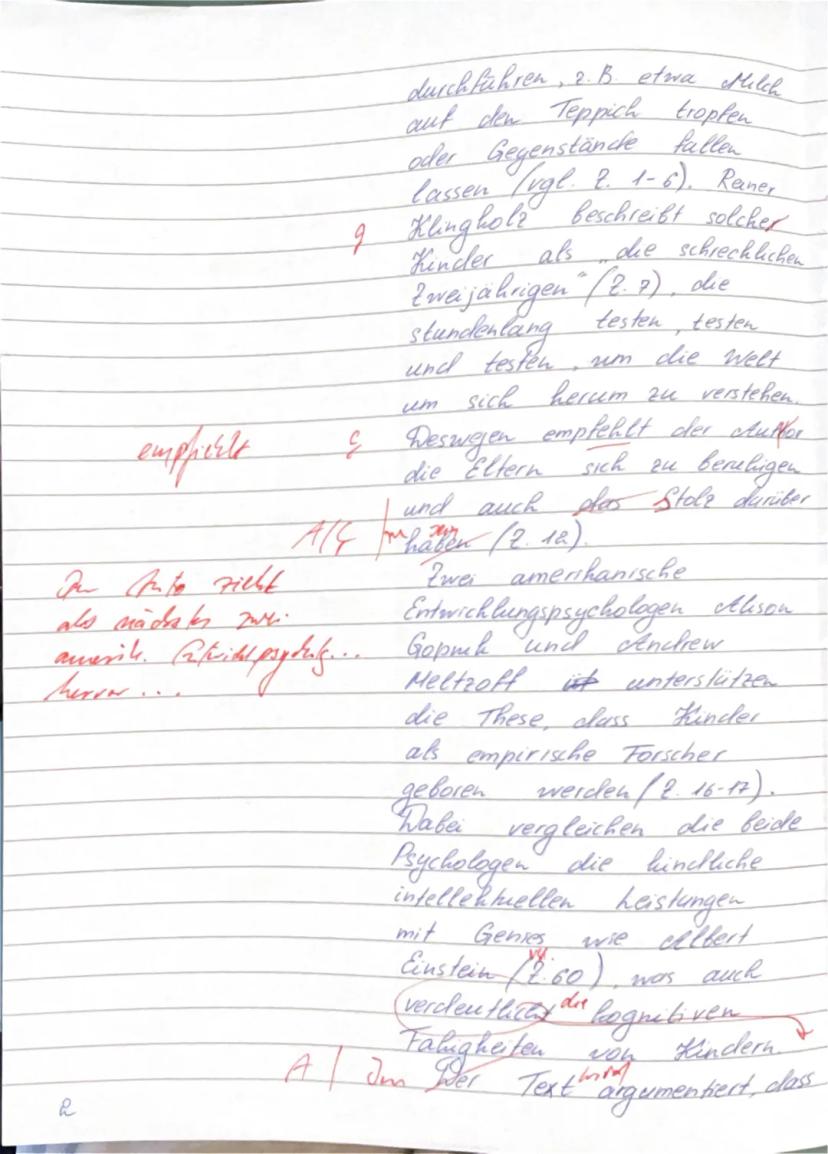 durchführen, z.B. etwa Milch
auf den Teppich tropfen
oder Gegenstände fallen
lassen (vgl. Z. 1-6). Reiner
g Klingholz beschreibt solcher
Kinder als „die schrecklichen
Zweijährigen" (Z. 7), die
stundenlang testen, testen
und testen, um die Welt
um sich herum zu verstehen.
empfiehlt Deswegen empfehlt der Auttor
die Eltern sich zu beruhigen
und auch das Stolz darüber
A/ haben (Z. 12).
Zwei amerikanische
zieht Entwicklungspsychologen Alison
als nächstes zwei Gopnik und Andrew
amerik. Meltzoff ist unterstützen
hervor... die These, dass Kinder
als empirische Forscher
geboren werden (Z. 16-17).
Dabei vergleichen die beide
Psychologen die kindliche
intellektuellen Leistungen
mit Genies wie Albert
Einstein (Z. 60), was auch
verdeutlicht die kognitiven
Fähigkeiten von Kindern.
A Im Der Text wird argumentiert, dass
2